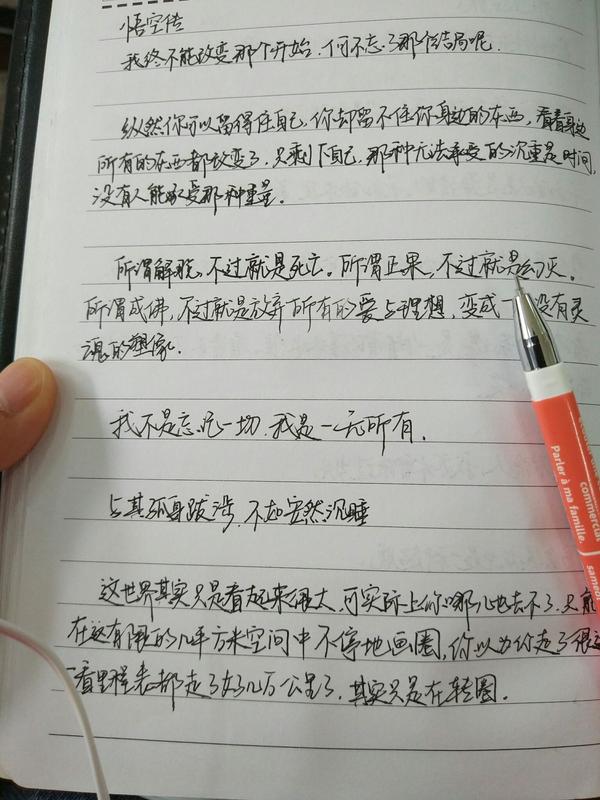 悟空传
我终不能改变那个开始,何不忘了那个结局呢.
纵然你可以留得住自己,你却留不住你身边的东西,看着身边
所有的东西都改变了,只剩下自己,那种无法承受的沉重是时间,
没有人能承受那种重量.
所谓解脱,不过就是死亡.所谓正果,不过就是幻灭.
所谓成佛,不过就是放弃所有的爱与理想,变成一 没有灵
魂的塑像.
我不是忘记一切,我是一无所有.
与其孤身跋涉,不如安然沉睡
这世界其实只是看起来很大,可实际上你哪儿也去不了,只能
在这有限的几平方米空间中不停地画圈,你以为你走了很远
一看里程表都走了好几万公里了,其实只是在转圈.
commercial
Parler à ma famille.